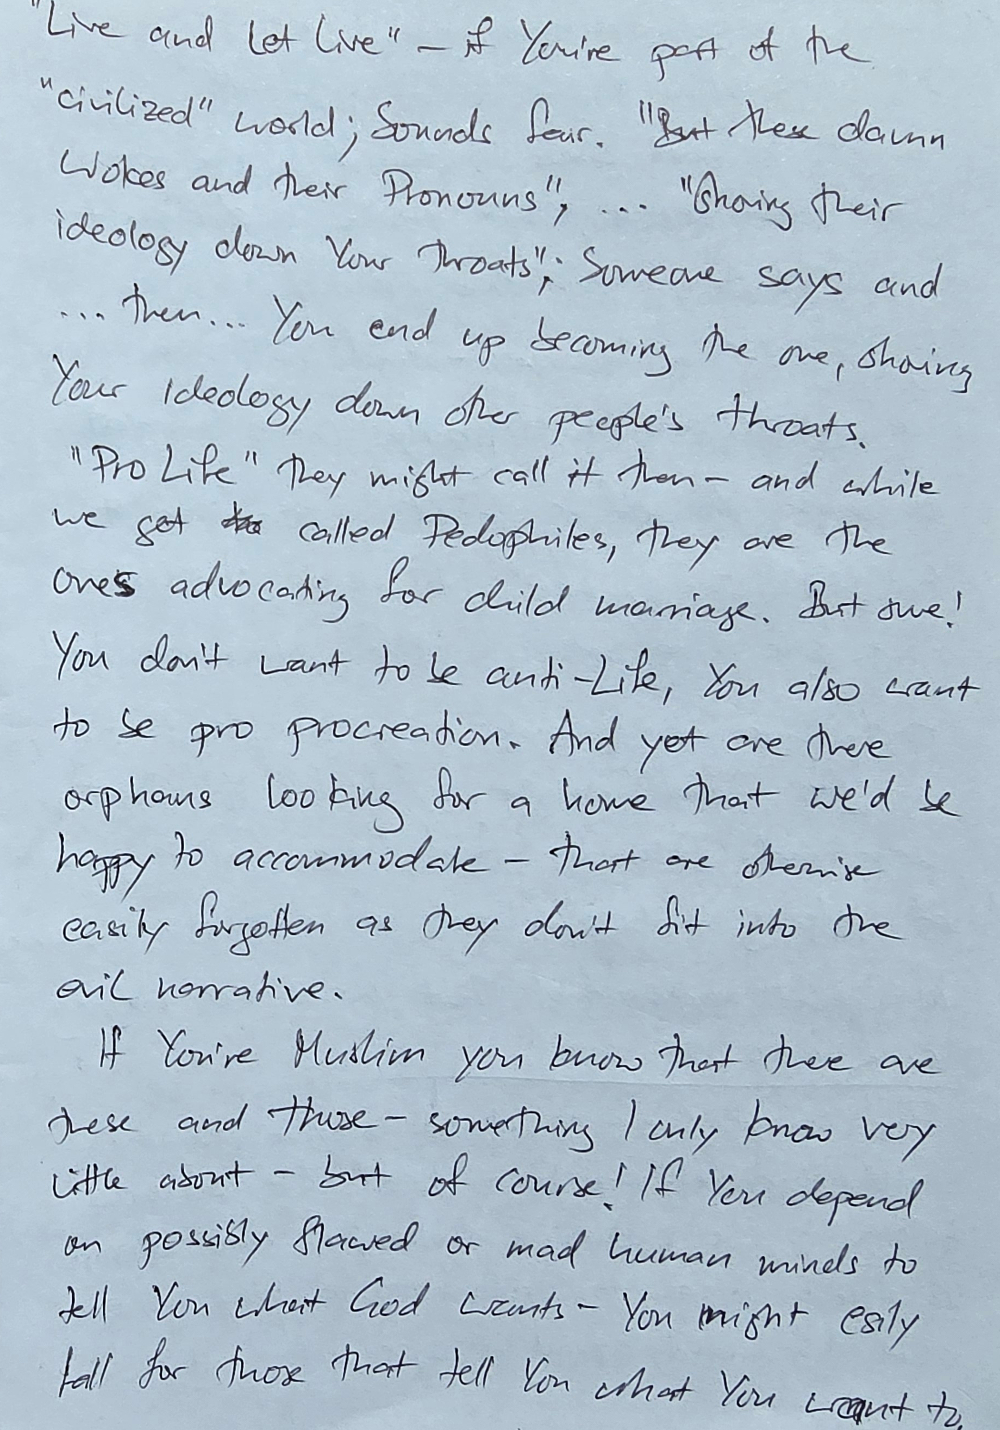 "Live and let live" – if You're part of the
"civilized" world; Sounds fear. "But these damn
Wokes and their Pronouns"; ... "Shoving their
ideology down Your Throats"; Someone says and
... then... You end up becoming the one, shoving
Your ideology down other people's throats.
"Pro Life" they might call it then – and while
we get called Pedophiles, they are the
ones advocating for child marriage. But sure!
You don't want to be anti-Life, You also want
to be pro procreation. And yet are there
orphans looking for a home that we'd be
happy to accommodate – that are otherwise
easily forgotten as they don't fit into the
evil narrative.
If You're Muslim you know that there are
these and those – something I only know very
little about – but of course! If You depend
on possibly flawed or mad human minds to
tell You what God wants – You might easily
fall for those that tell You what You want to.